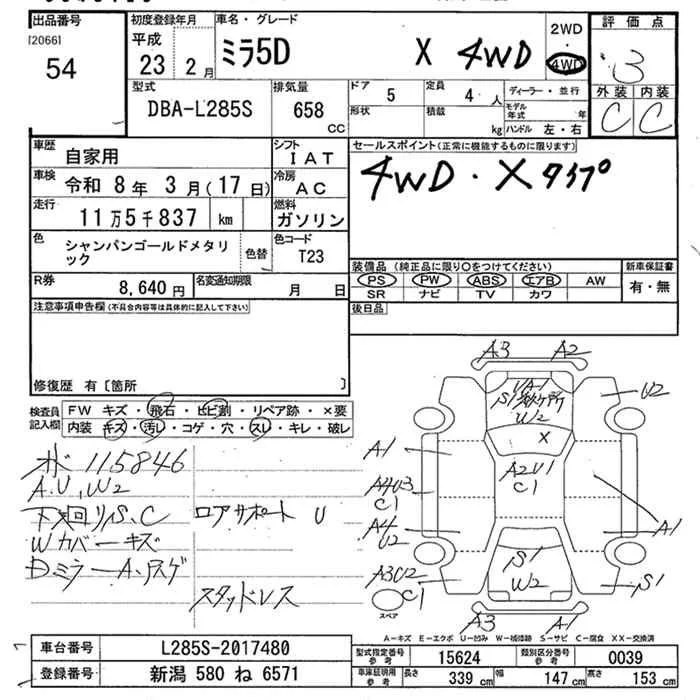 出品番号
[2066]
54
初度登録年月
平成
23 2月
車名・グレード
ミラ5D X 4WD
2WD
・
4WD
評価点
3
外装 内装
C C
型式
DBA-L285S
排気量
658
CC
ドア
5
定員
4 人
形状
積載
kg
ディーラー・並行
モデル年式 年
ハンドル 左・右
車歴
自家用
シフト
IAT
車検
令和 8年 3月(17日)
冷房
AC
走行
11万5千837 km
燃料
ガソリン
色
シャンパンゴールドメタリック
色替
色コード
T23
R券
8,640 円
名変通知期限
月 日
セールスポイント(正常に機能するものに限ります)
4WD・Xタイプ
装備品 (純正品に限り○をつけてください)
PS PW ABS エアB AW
SR ナビ TV カワ
新車保証書
有・無
後日品
注意事項申告欄(不具合内容等は具体的に記入して下さい)
修復歴 有〔箇所 〕
検査員
記入欄
FW キズ・飛石・ヒビ割・リペア跡・×要
内装 キズ・汚レ・コゲ・穴・スレ・キレ・破レ
115846
A.U,W2
下廻リS.C
ロアサポート U
Wカバーキズ
Dミラー
スタッドレス
A3 A2
S1
W2
U2
X
A1
A2U1
C1
A4U3
C1
A4
U2
A1
A3U2
C1
S1
W2
S1
A3
A1
スペア
A－キズ E－エクボ U－凹み W－補修跡 S－サビ C－腐食 XX－交換済
車台番号
L285S-2017480
登録番号
新潟 580 ね 6571
型式指定番号
参考
15624
類別区分番号
参考
0039
車庫証明用
参考
長さ 339 cm
幅 147 cm
高さ 153 cm